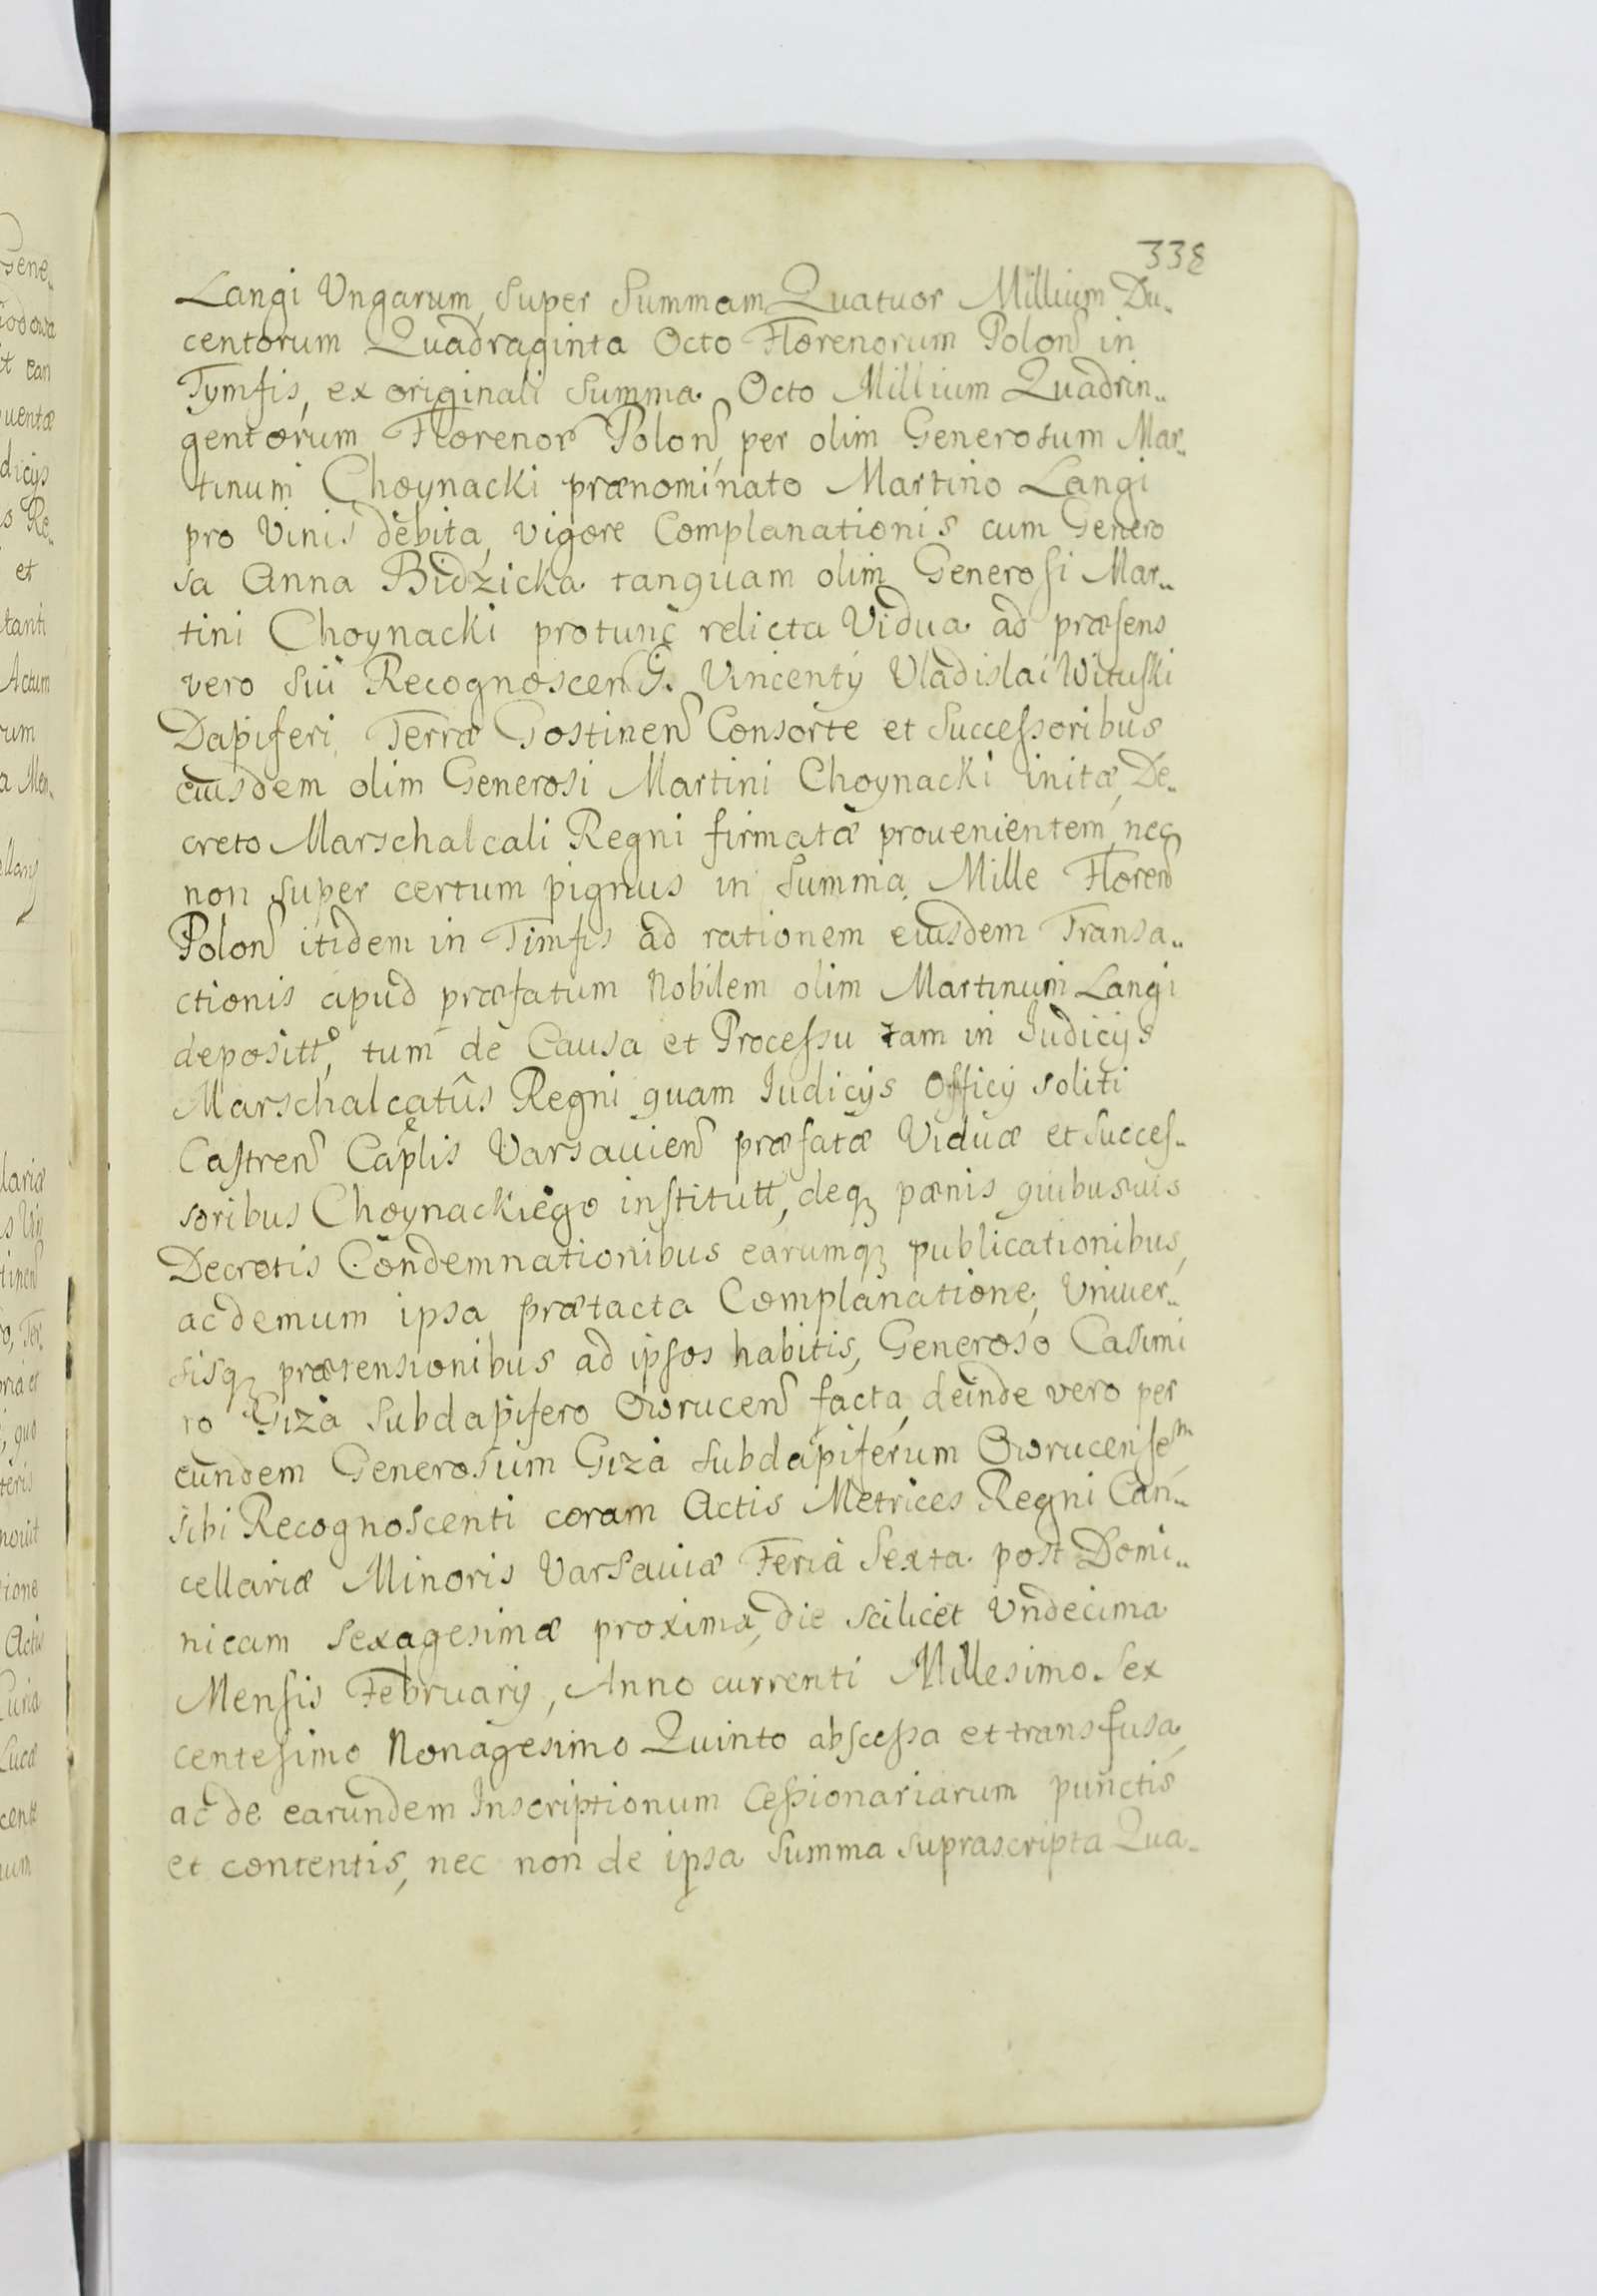 338
Langi Vngarum, super Summam Quatuor Millium Du-
centorum Quadraginta Octo Florenorum Polon in
Tymfis, ex originali Summa Octo Millium Quadrin-
gentorum Florenor Polon, per olim Generosum Mar-
tinum Choynacki prænominato Martino Langi
pro Vinis debita, vigore Complanationis cum Genero
sa Anna Bidzicka tanquam olim Generosi Mar-
tini Choynacki protunc relicta Vidua ad præsens
vero sui Recognoscen G. Vincentij Vladislai Wituski
Dapiferi Terræ Gostinen Consorte et Successoribus
eiusdem olim Generosi Martini Choynacki initæ, De-
creto Marschalcali Regni firmatæ prouenientem, nec
non super certum pignus in Summa Mille Floren
Polon itidem in Timfis ad rationem eiusdem Transa-
ctionis apud præfatum Nobilem olim Martinum Langi
depositt°, tum de Causa et Processu tam in Iudicijs
Marschalcatûs Regni quam Iudicijs Officij soliti
Castren Caplis Varsauien præfatæ Viduæ et Succes-
soribus Choynackiego institutt, deq; pænis quibusuis
Decretis Condemnationibus earumq; publicationibus,
ac demum ipsa prætacta Complanatione, Vniuer-
sisq; prætensionibus ad ipsos habitis, Generoso Casimi
ro Giza Subdapifero Owrucen facta, deinde vero per
eundem Generosum Giza Subdapiferum Owrucensem
sibi Recognoscenti coram Actis Metrices Regni Can-
cellariæ Minoris Varsauiæ Feria Sexta post Domi-
nicam Sexagesimæ proxima, die scilicet Vndecima
Mensis February, Anno currenti Millesimo Sex
centesimo Nonagesimo Quinto abscessa et transfusa,
ac de earundem Inscriptionum Cessionariarum punctis
et contentis, nec non de ipsa Summa suprascripta Qua-